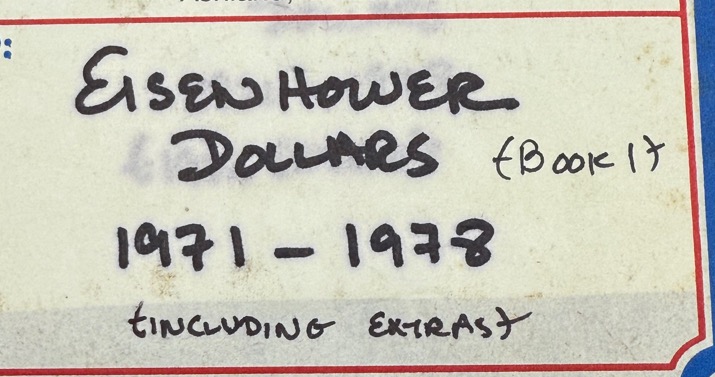 EISENHOWER
DOLLARS {BOOK 1}
1971 - 1978
{INCLUDING EXTRAS}